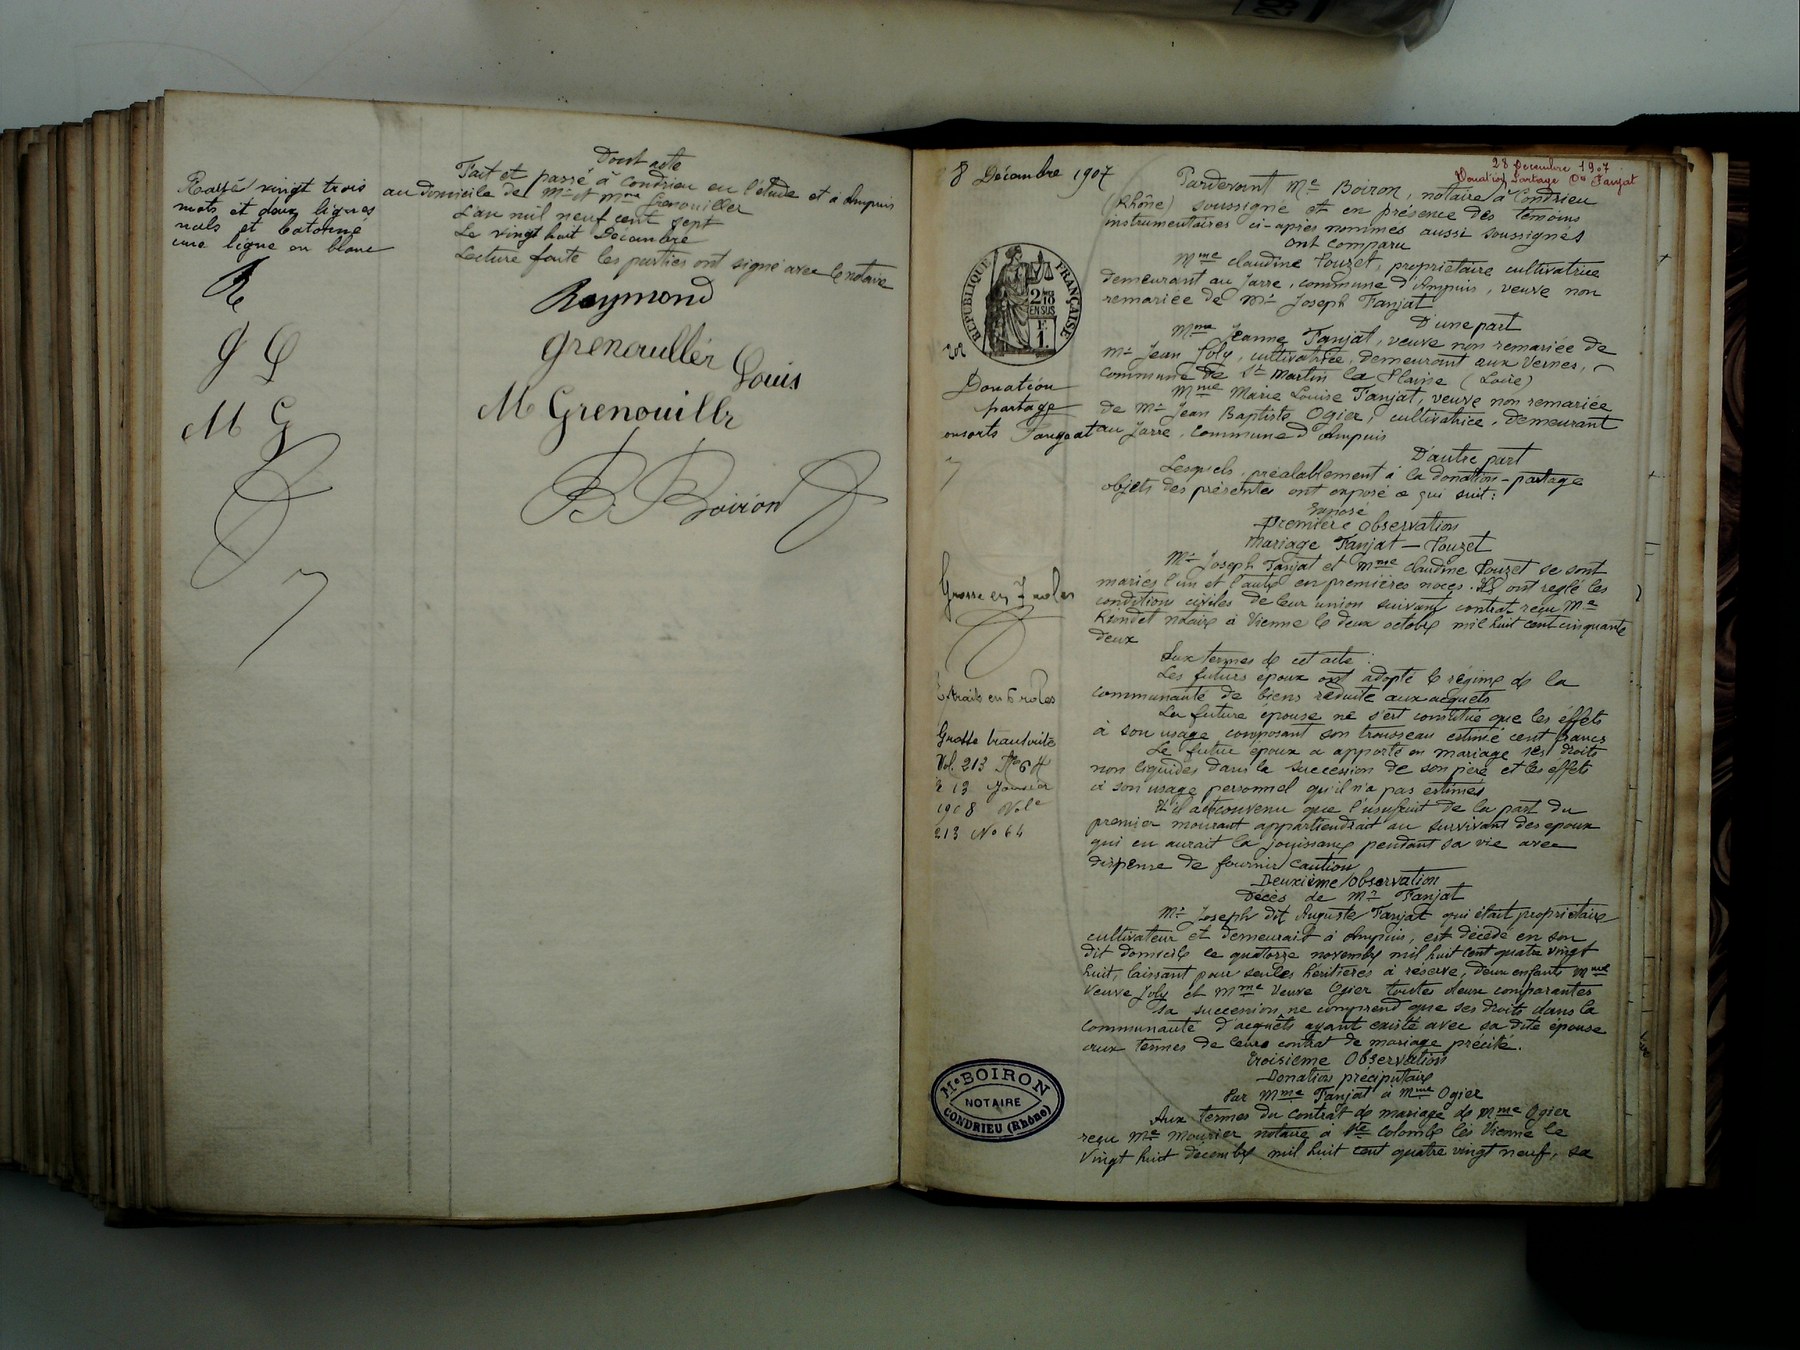 Dont acte
Fait et passé à Condrieu en l'étude et à Ampuis
au domicile de Mr et Mme Grenouiller
L'an mil neuf cent sept
Le vingt huit Décembre
Lecture faite les parties ont signé avec le notaire
Rayé vingt trois
mots et deux lignes
nuls et batonné
une ligne en blanc
R
G L
M G
Raymond
Grenouiller Louis
M Grenouiller
B Boiron
28 Décembre 1907
Donation Partage Con Fanjat
8 Décembre 1907
Pardevant Me Boiron, notaire à Condrieu
(Rhône) soussigné et en présence des témoins
instrumentaires ci-après nommés aussi soussignés
Ont comparu
Mme Claudine Pouzet, propriétaire cultivatrice
demeurant au Jarre, commune d'Ampuis, veuve non
remariée de Mr Joseph Fanjat
D'une part
Mme Jeanne Fanjat, veuve non remariée de
Mr Jean Joly, cultivatrice, demeurant aux Vernes,
commune de St Martin la Plaine (Loire)
Mme Marie Louise Fanjat, veuve non remariée
de Mr Jean Baptiste Ogier, cultivatrice, demeurant
au Jarre, commune d'Ampuis
D'autre part
Lesquels, préalablement à la donation-partage
objets des présentes ont exposé ce qui suit:
Exposé
Première Observation
Mariage Fanjat - Pouzet
Mr Joseph Fanjat et Mme Claudine Pouzet se sont
mariés l'un et l'autre en premières noces. Ils ont réglé les
conditions civiles de leur union suivant contrat reçu Me
notaire à Vienne le deux octobre mil huit cent cinquante
deux
Aux termes de cet acte:
Les futurs époux ont adopté le régime de la
communauté de biens réduite aux acquets
La future épouse ne s'est constitué que les effets
à son usage composant son trousseau estimé cent francs
Le futur époux a apporté en mariage ses droits
non liquidés dans la succession de son père et les effets
à son usage personnel qu'il n'a pas estimés
Il a été convenu que l'usufruit de la part du
premier mourant appartiendrait au survivant des époux
qui en aurait la jouissance pendant sa vie avec
dispense de fournir caution
Deuxième Observation
Décès de Mr Fanjat
Mr Joseph dit Auguste Fanjat qui était propriétaire
cultivateur et demeurait à Ampuis, est décédé en son
dit domicile le quatorze novembre mil huit cent quatre vingt
huit, laissant pour seules héritières à réserve, deux enfants Mme
Veuve Joly et Mme Veuve Ogier toutes deux comparantes
Sa succession ne comprend que ses droits dans la
communauté d'acquêts ayant existé avec sa dite épouse
aux termes de leur contrat de mariage précité.
Troisième Observation
Donation préciputaire
Par Mme Fanjat à Mme Ogier
Aux termes du contrat de mariage de Mme Ogier
reçu Me Mourier notaire à Ste Colombe lès Vienne le
vingt huit décembre mil huit cent quatre vingt neuf, sa
RÉPUBLIQUE FRANÇAISE
2/10 EN SUS
F. 1.
Donation
partage
onsorts Fangeat
Grosse en 7 roles
Extrait en 6 roles
Grosse transcrite
Vol. 213 No 64
le 13 Janvier
1908 Vole
213 No 64
Me BOIRON
NOTAIRE
CONDRIEU (Rhône)